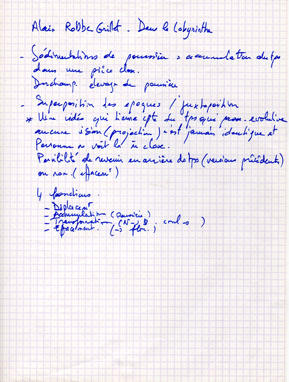 Alain Robbe Grillet. Dans le Labyrinthe
- Sédimentations de poussière = accumulation du tps
dans une pièce close.
Duschamp. élevage de poussière
- Superposition des époques / juxtaposition
* Une vidéo qui tienne cpte du tps que passe. evolutive
aucune vision (projection) n'est jamais identique et
Personne ne voit la m̂ chose.
Possibilité de revenir en arrière ds tps (versions précédentes)
ou non. (effacent)
4 fonctions :
- Déplacent
- Accumulation
- Transformation (N →
- Effacement. (→ flou.)